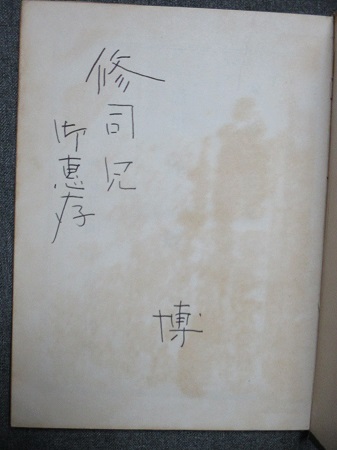 修司兄
御惠存
博